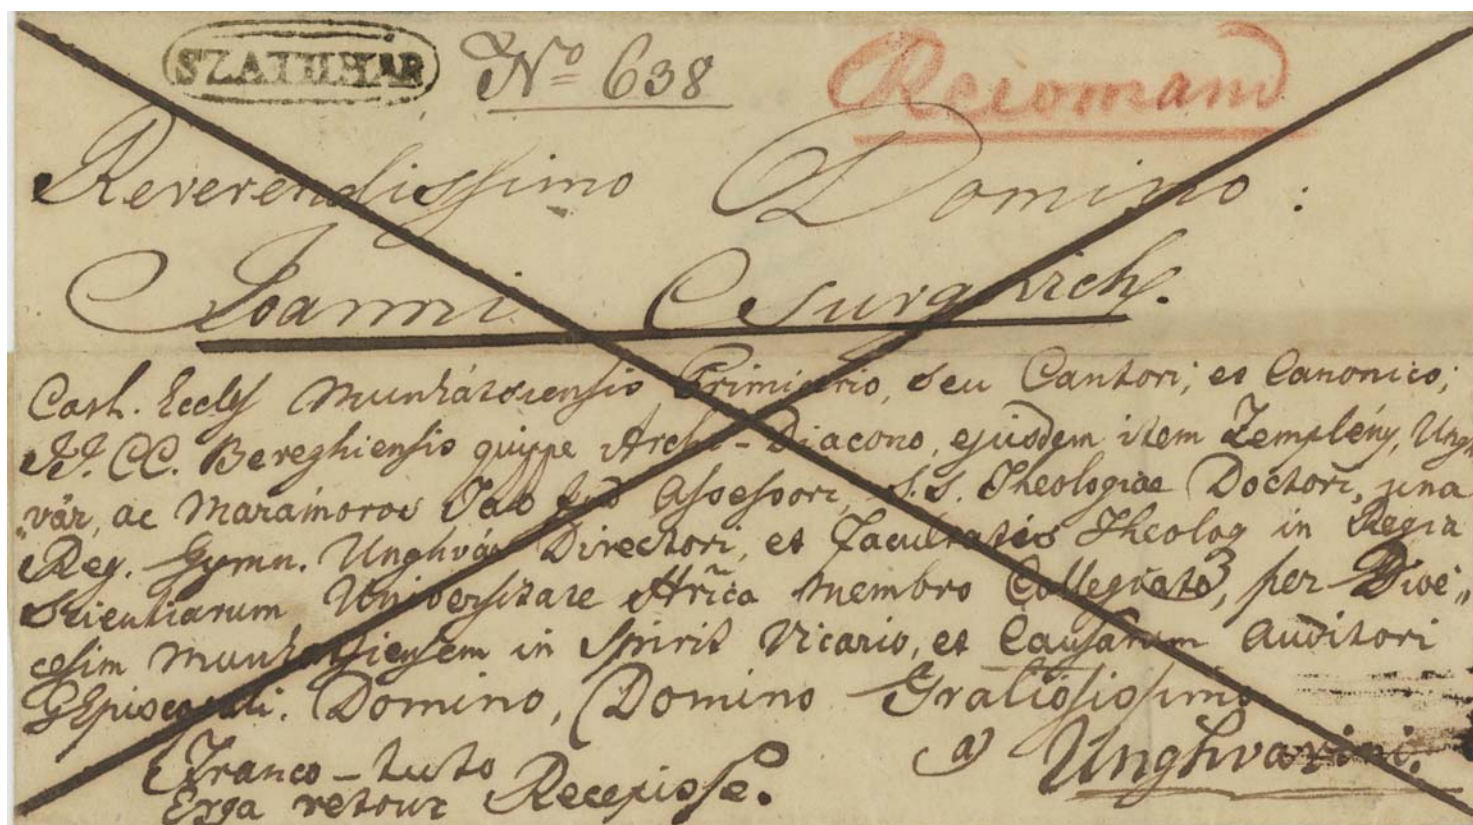 SZATHMAR No 638 Recomand
Reverendissimo Domino :
Joanni Csurgovich.
Cath. Eccles Munkátsiensis Primicerio, seu Cantori; et Canonico;
II. CC. Bereghiensis quippe Archi-Diacono, ejusdem item Zemplény, Ungh„
„vár, ac Marámoros Tab Jud Assessori, S.S. Theologiae Doctori, una
Reg. Gymn. Unghvár Directori, et Facultatis Theolog in Regia
Scientiarum Universitate Hñca Membro Collegiato, per Dioe„
cesim Munkátsiensem in Spirit Vicario, et Causarum Auditori
GEpiscopali. Domino, Domino Gratiosissimo
Franco-tuto a) Unghvarini.
Erga retour Recepisse.